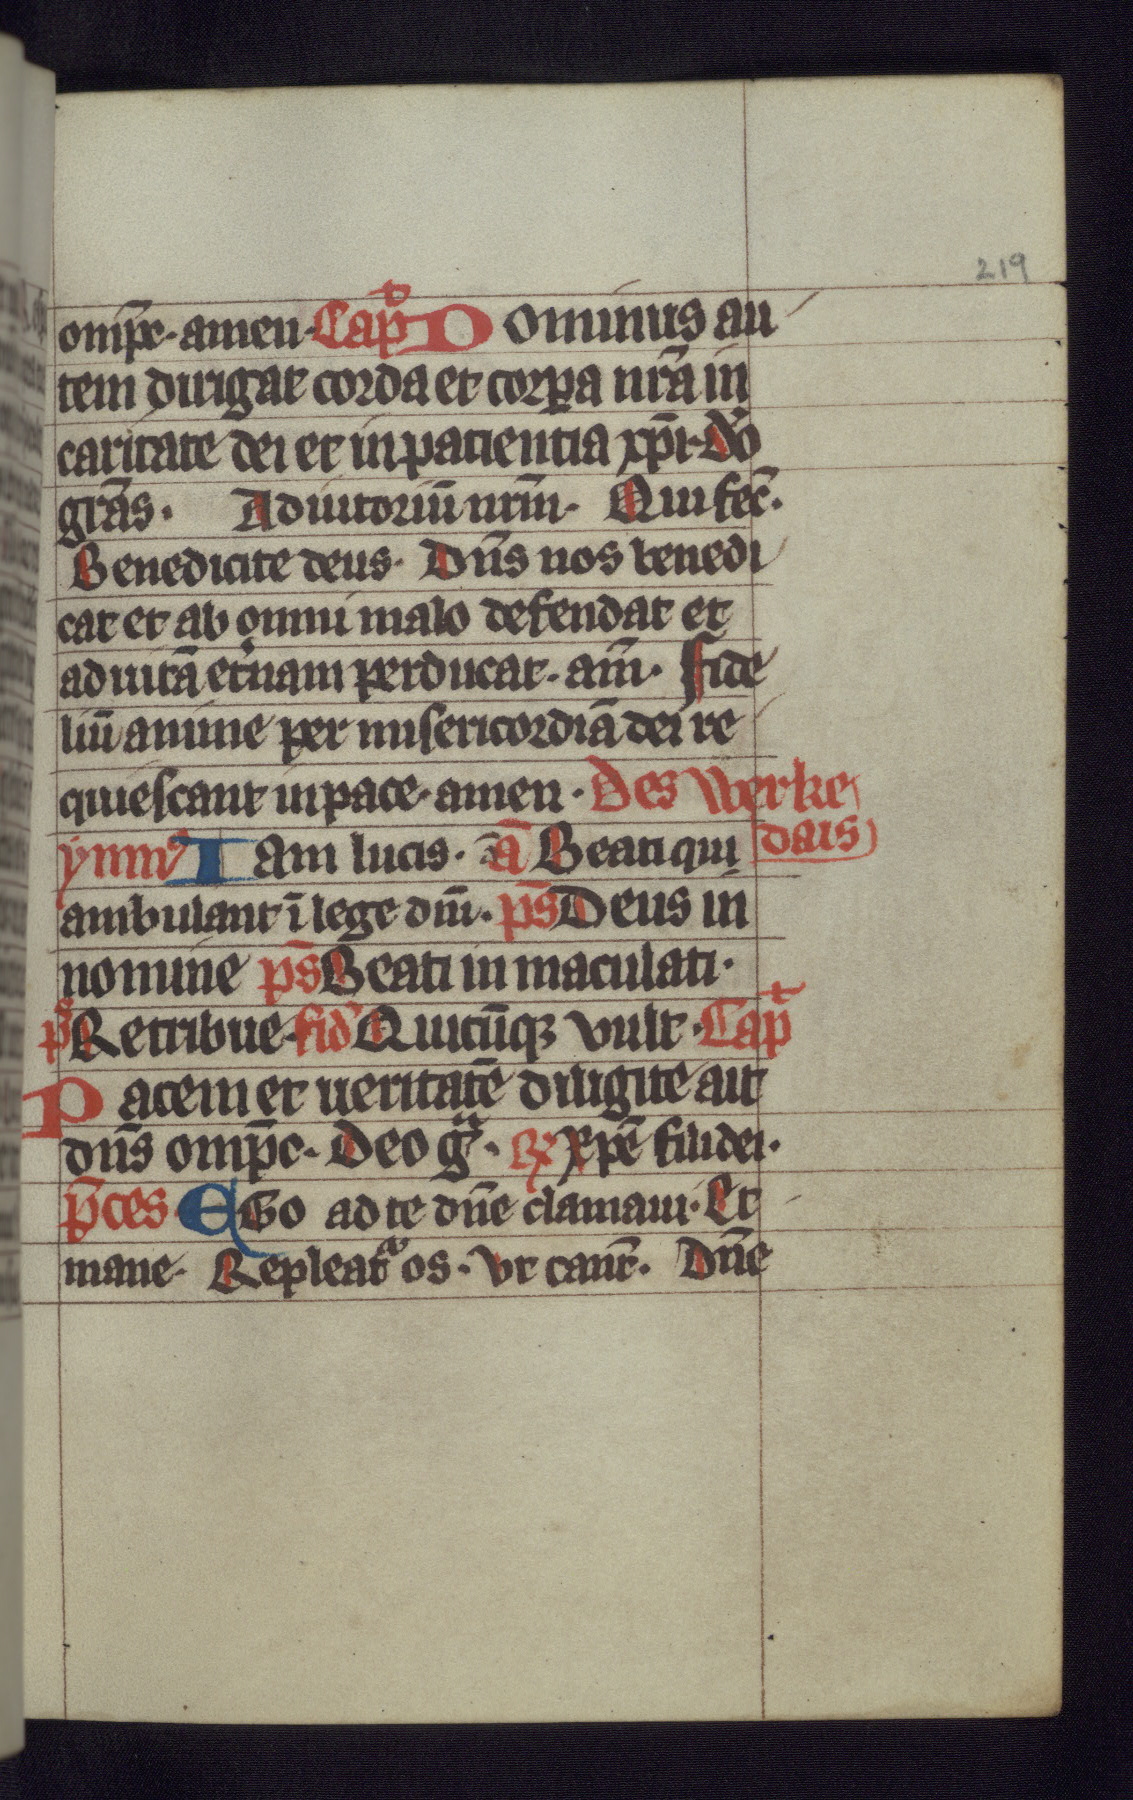 219
omp̄c · amen · Cap̄ᵗ Dominus au
tem dirigat corda et corpa nr̄a in
caritate dei et in patientia xp̄i · do
gr̄as · Adiutoriū nrm̄ · Qui fec̄ ·
Benedicite deus · Dn̄s nos benedi
cat et ab omni malo defendat et
ad uitā et̾nam perducat · am̄ · fide
liū anime per misericordiā dei re
quiescant in pace · amen · Des werke
dais
ymn᾽ Iam lucis · ā Beati qui
ambulant ī lege dm̄ · ps̄ Deus in
nomine ps̄ Beati inmaculati ·
ps̄ Retribue · fid᾽ Quicūqꝫ vult · Cap̄ᵗ
Pacem et ueritatē diligite ait
dn̄s omp̄c · Deo gᵃ · ℟ xp̄e fili dei ·
p̄ces Ego ad te dn̄e clamaui · Et
mane · Repleat᾽ os · vt cant̄ · Dn̄e